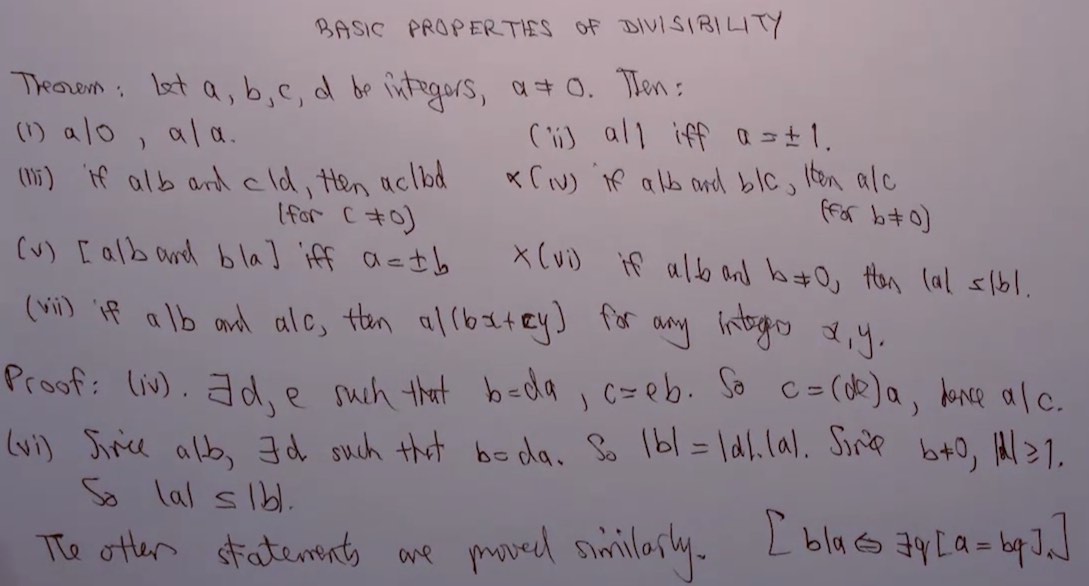 BASIC PROPERTIES OF DIVISIBILITY
Theorem: Let a, b, c, d be integers, a ≠ 0. Then:
(i) a|0, a|a. (ii) a|1 iff a = ±1.
(iii) if a|b and c|d, then ac|bd × (iv) if a|b and b|c, then a|c
(for c ≠ 0) (for b ≠ 0)
(v) [a|b and b|a] iff a = ±b × (vi) if a|b and b ≠ 0, then |a| ≤ |b|.
(vii) if a|b and a|c, then a|(bx+cy) for any integers x, y.
Proof: (iv). ∃d, e such that b=da, c=eb. So c=(de)a, hence a|c.
(vi) Since a|b, ∃d such that b=da. So |b| = |d|.|a|. Since b≠0, |d| ≥ 1.
So |a| ≤ |b|.
The other statements are proved similarly. [b|a ⇔ ∃q[a = bq].]